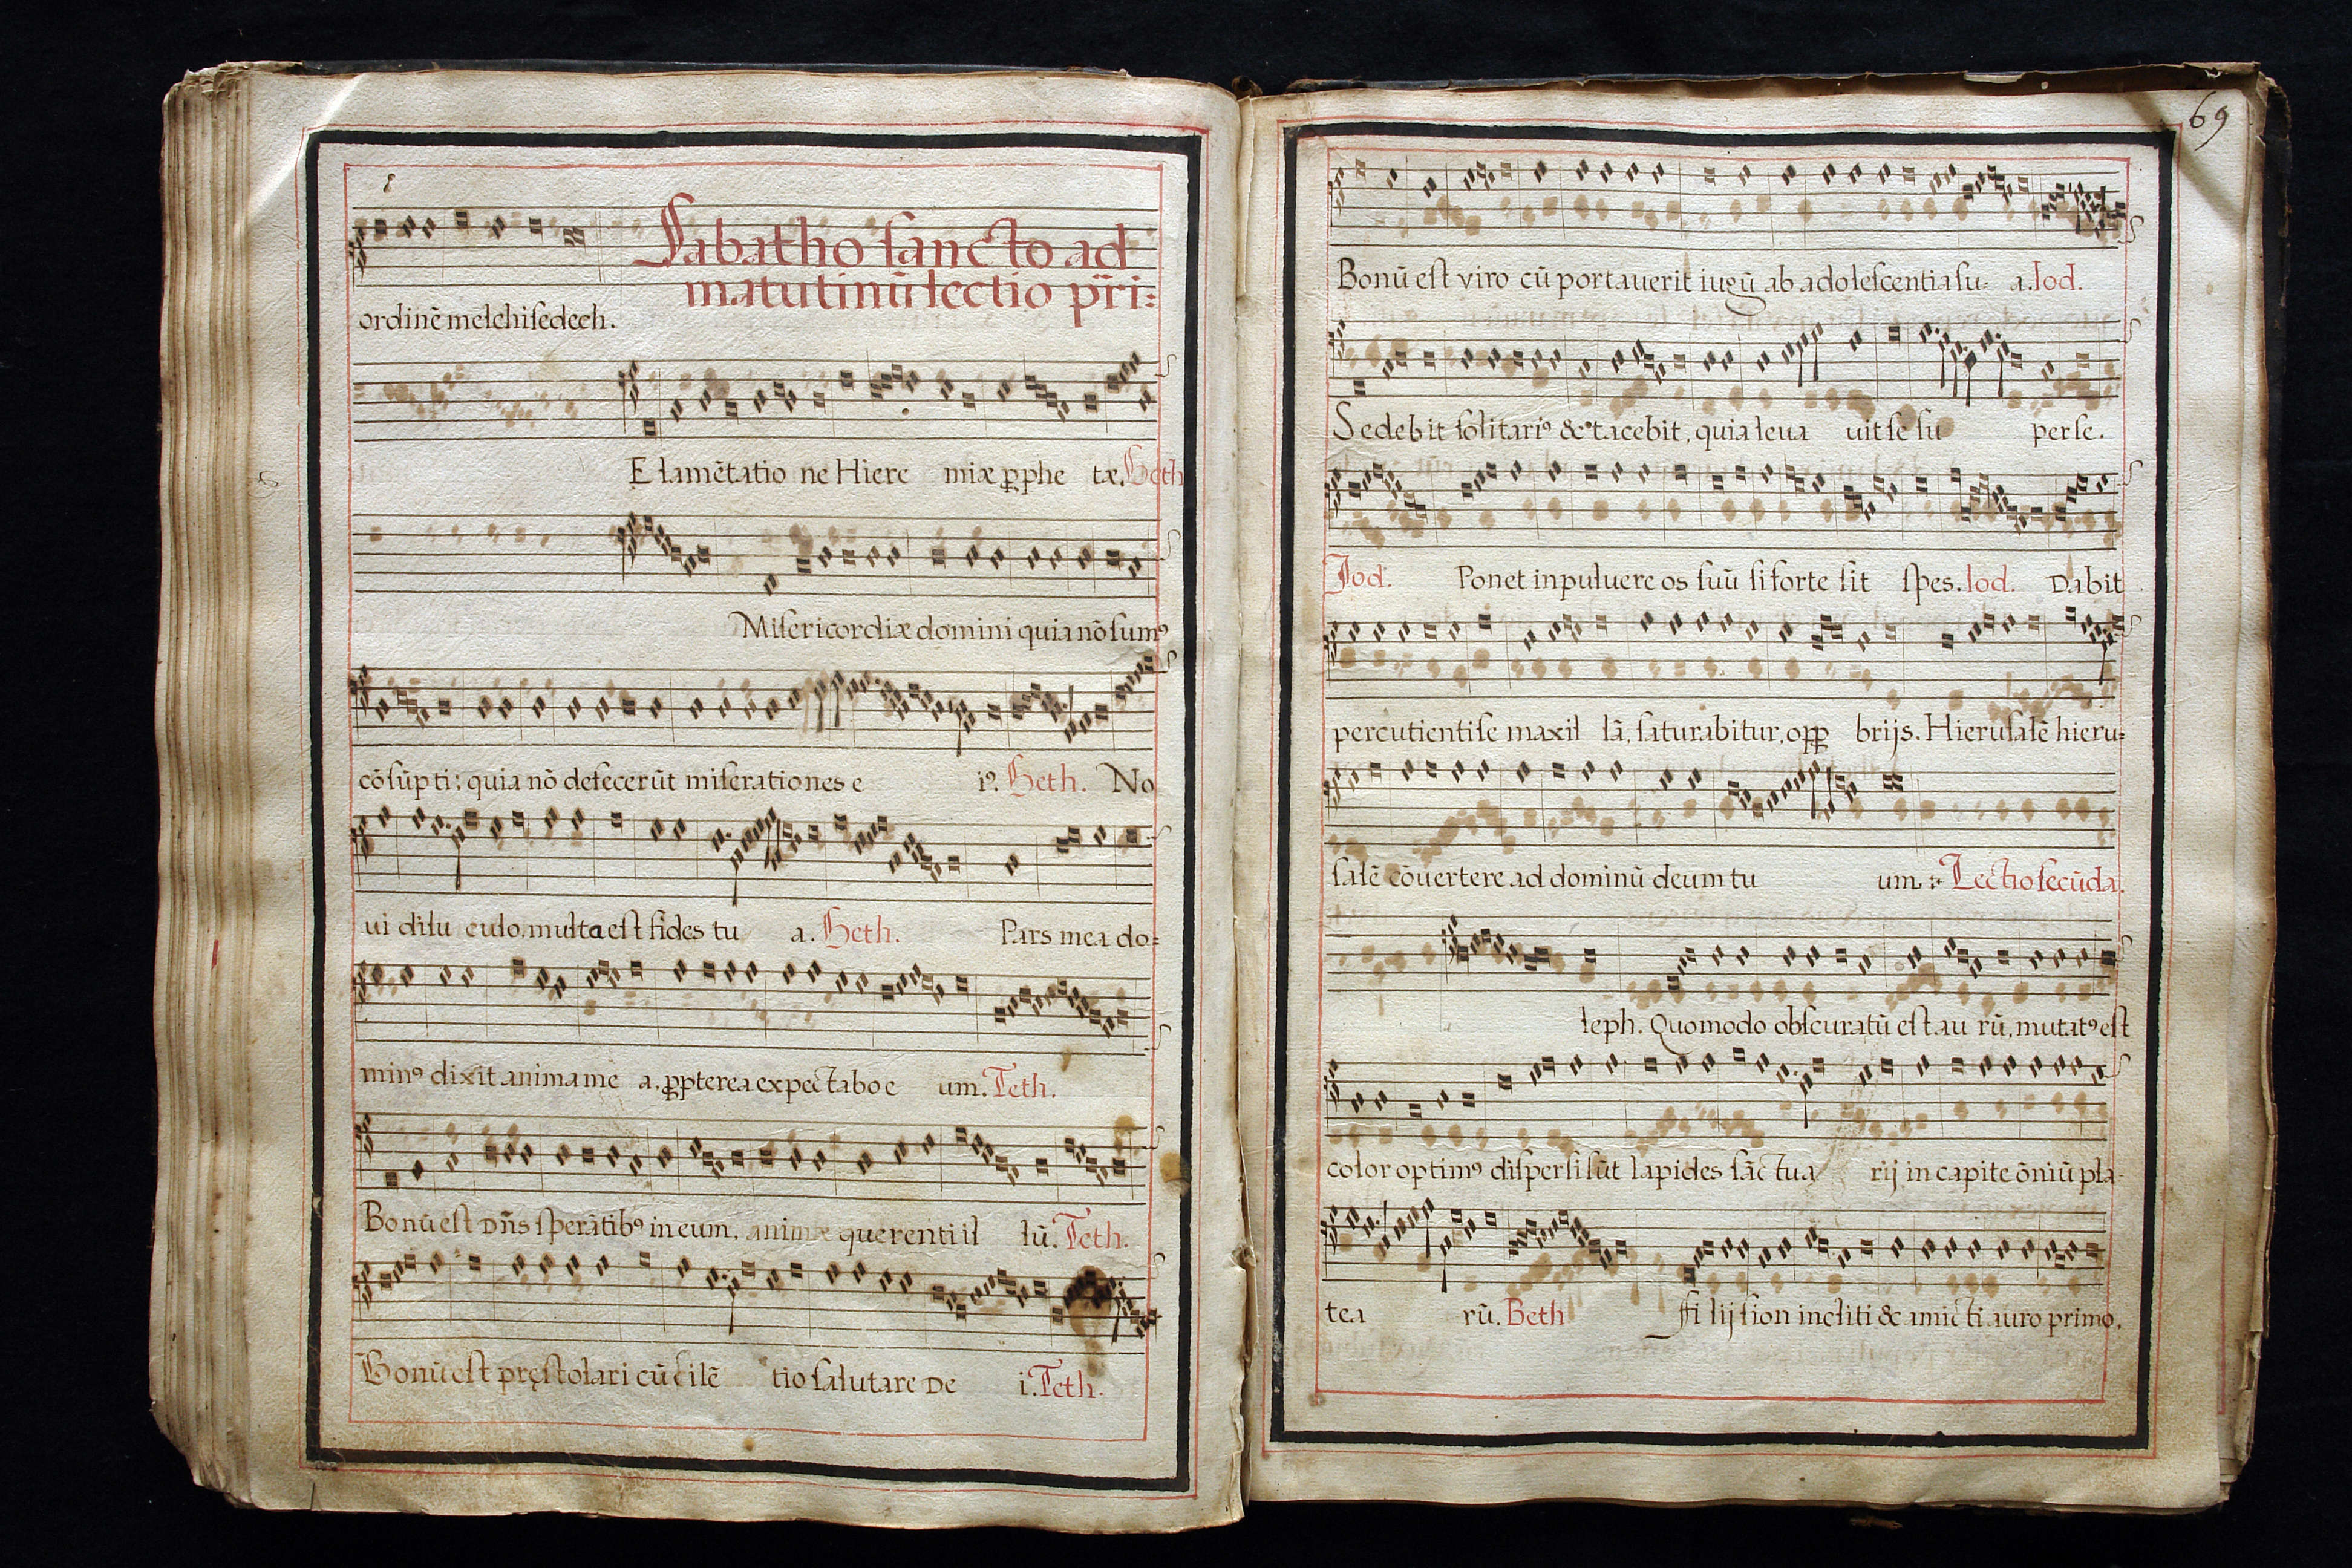 Sabatho sancto ad
matutinū lectio pr̄i:
ordinē melchisedech.
E lamētatio ne Hiere miæ ꝓphe tæ. Heth
Misericordiæ domini quia nō sumꝰ
cōsūpti: quia nō defecerūt miserationes e iꝰ. Heth. No
ui dilu culo, multa est fides tu a. Heth. Pars mea do=
minꝰ dixit anima me a. ꝓpterea expectabo e um. Teth.
Bonū est Dn̄s sperātibꝰ in eum, animæ querenti il lū. Teth.
Bonū est pręstolari cū silē tio salutare De i. Teth.
69
Bonū est viro cū portauerit iugū ab adolescentia su= a. Iod.
Sedebit solitariꝰ & tacebit, quia leua uit se su per se.
Iod. Ponet in puluere os suū si forte sit spes. Iod. Dabit
percutienti se maxil lā, saturabitur, opꝓ brijs. Hierusalē hieru=
salē cōuertere ad dominū deum tu um. Lectio secūda.
leph. Quomodo obscuratū est au rū, mutatꝰ est
color optimꝰ dispersi sūt lapides sāctua rij in capite ōniū pla-
tea rū. Beth Fi lij sion incliti & amicti auro primo,